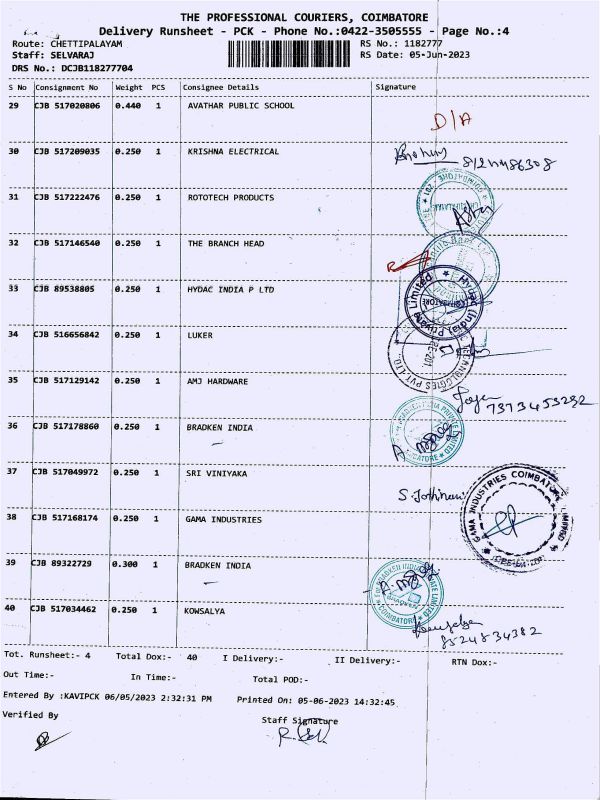 THE PROFESSIONAL COURIERS, COIMBATORE
Delivery Runsheet - PCK - Phone No.:0422-3505555 - Page No.:4
Route: CHETTIPALAYAM RS No.: 1182777
Staff: SELVARAJ RS Date: 05-Jun-2023
DRS No.: DCJB118277704
S No Consignment No Weight PCS Consignee Details Signature
29 CJB 517020806 0.440 1 AVATHAR PUBLIC SCHOOL
D/A
30 CJB 517209035 0.250 1 KRISHNA ELECTRICAL
31 CJB 517222476 0.250 1 ROTOTECH PRODUCTS
32 CJB 517146540 0.250 1 THE BRANCH HEAD
33 CJB 89538805 0.250 1 HYDAC INDIA P LTD
Hydac (India) Private Limited
COIMBATORE
34 CJB 516656842 0.250 1 LUKER
TECHNOLOGIES PVT. LTD.
35 CJB 517129142 0.250 1 AMJ HARDWARE
7373453292
36 CJB 517178860 0.250 1 BRADKEN INDIA
37 CJB 517049972 0.250 1 SRI VINIYAKA
38 CJB 517168174 0.250 1 GAMA INDUSTRIES
GAMA INDUSTRIES COIMBATORE LIMITED
39 CJB 89322729 0.300 1 BRADKEN INDIA
BRADKEN INDIA PRIVATE LIMITED
COIMBATORE
40 CJB 517034462 0.250 1 KOWSALYA
8524834382
Tot. Runsheet:- 4 Total Dox:- 40 I Delivery:- II Delivery:- RTN Dox:-
Out Time:- In Time:- Total POD:-
Entered By :KAVIPCK 06/05/2023 2:32:31 PM Printed On: 05-06-2023 14:32:45
Verified By Staff Signature